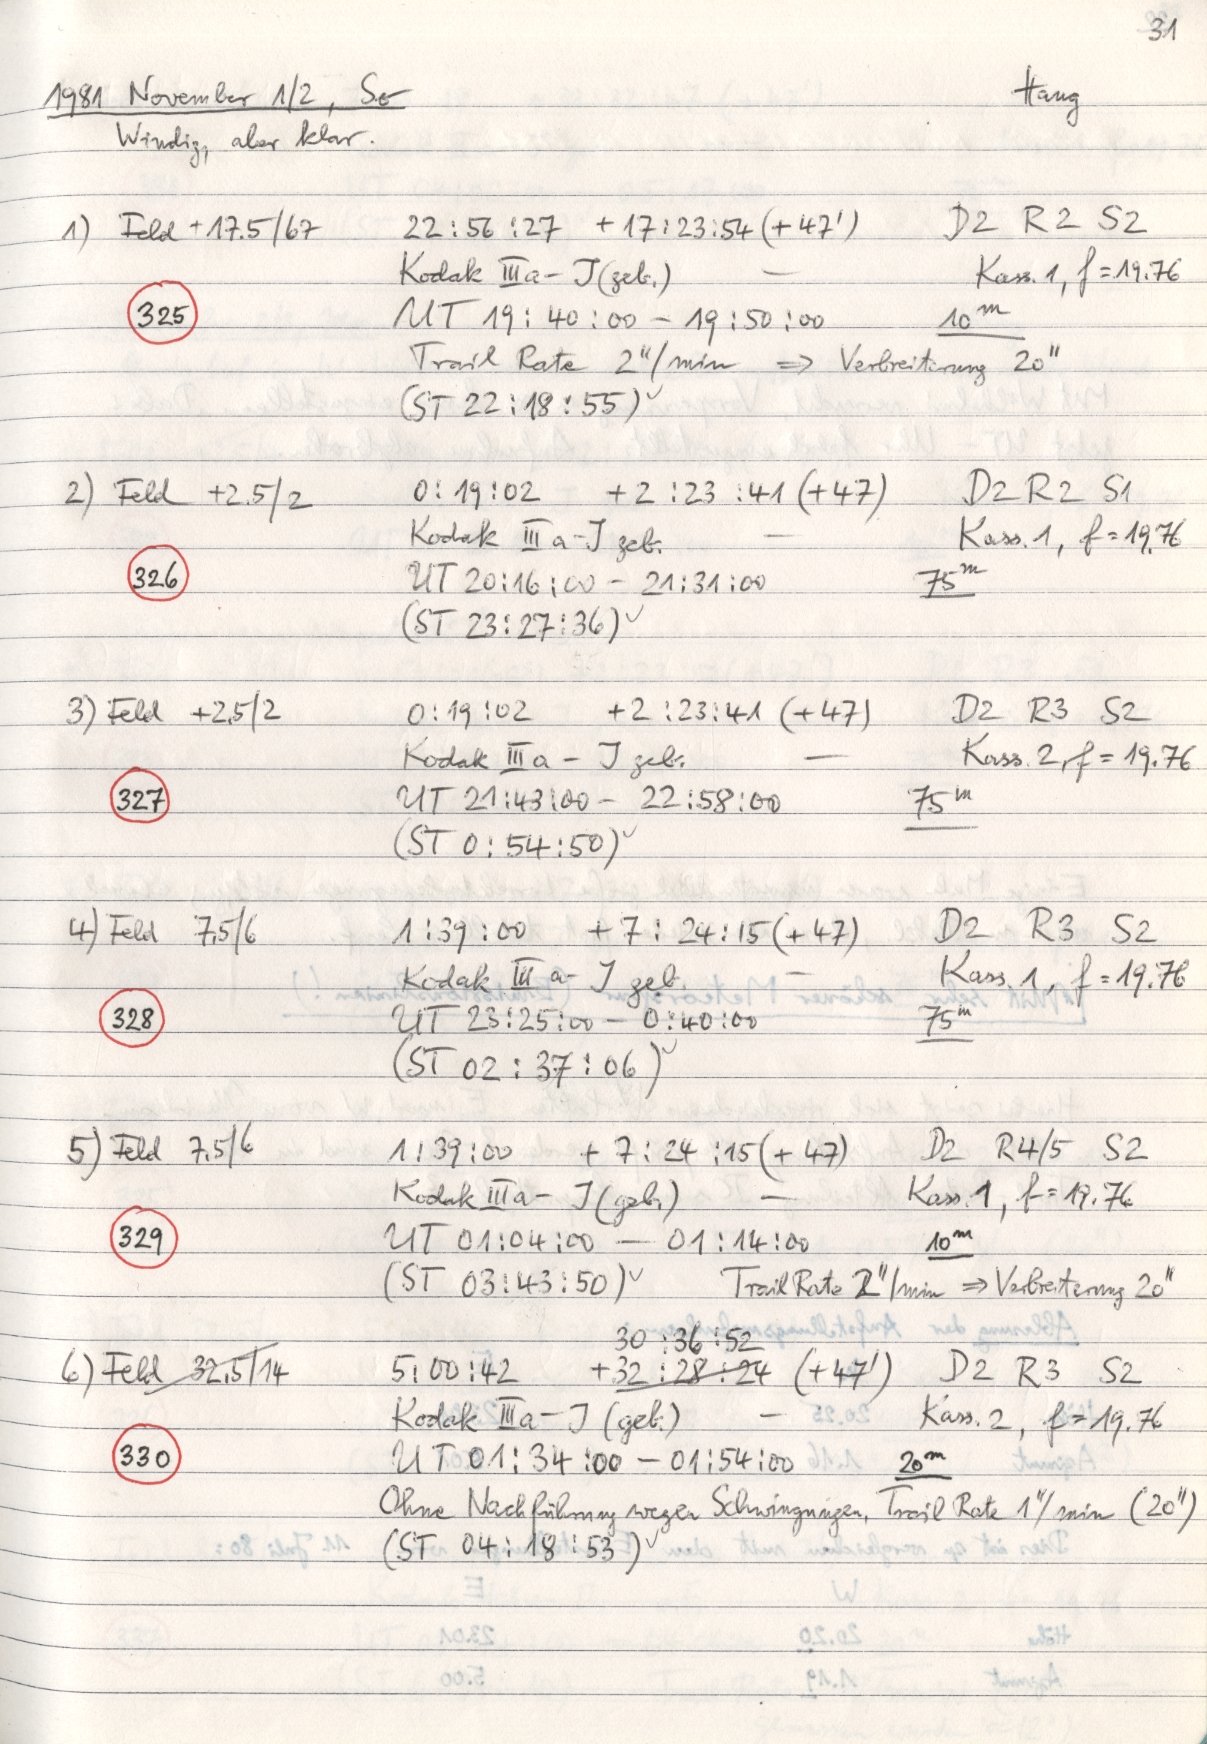 31
1981 November 1/2, So Haug
Windig, aber klar.
1) Feld +17.5/67 22:56:27 +17:23:54 (+47') D2 R2 S2
Kodak IIIa-J (geb.) — Kass. 1, f=19.76
325 UT 19:40:00 – 19:50:00 10m
Trail Rate 2"/min ⇒ Verbreiterung 20"
(ST 22:18:55) ✓
2) Feld +2.5/2 0:19:02 +2:23:41 (+47) D2 R2 S1
Kodak IIIa-J geb. — Kass. 1, f=19.76
326 UT 20:16:00 – 21:31:00 75m
(ST 23:27:36) ✓
3) Feld +2.5/2 0:19:02 +2:23:41 (+47) D2 R3 S2
Kodak IIIa-J geb. — Kass. 2, f=19.76
327 UT 21:43:00 – 22:58:00 75m
(ST 0:54:50) ✓
4) Feld 7.5/6 1:39:00 +7:24:15 (+47) D2 R3 S2
Kodak IIIa-J geb. — Kass. 1, f=19.76
328 UT 23:25:00 – 0:40:00 75m
(ST 02:37:06) ✓
5) Feld 7.5/6 1:39:00 +7:24:15 (+47) D2 R4/5 S2
Kodak IIIa-J (geb.) — Kass. 1, f=19.76
329 UT 01:04:00 — 01:14:00 10m
(ST 03:43:50) ✓ Trail Rate 2"/min ⇒ Verbreiterung 20"
30:36:52
6) Feld 32.5/14 5:00:42 +32:28:24 (+47') D2 R3 S2
Kodak IIIa-J (geb.) — Kass. 2, f=19.76
330 UT 01:34:00 – 01:54:00 20m
Ohne Nachführung wegen Schwingungen, Trail Rate 1"/min (20")
(ST 04:18:53) ✓